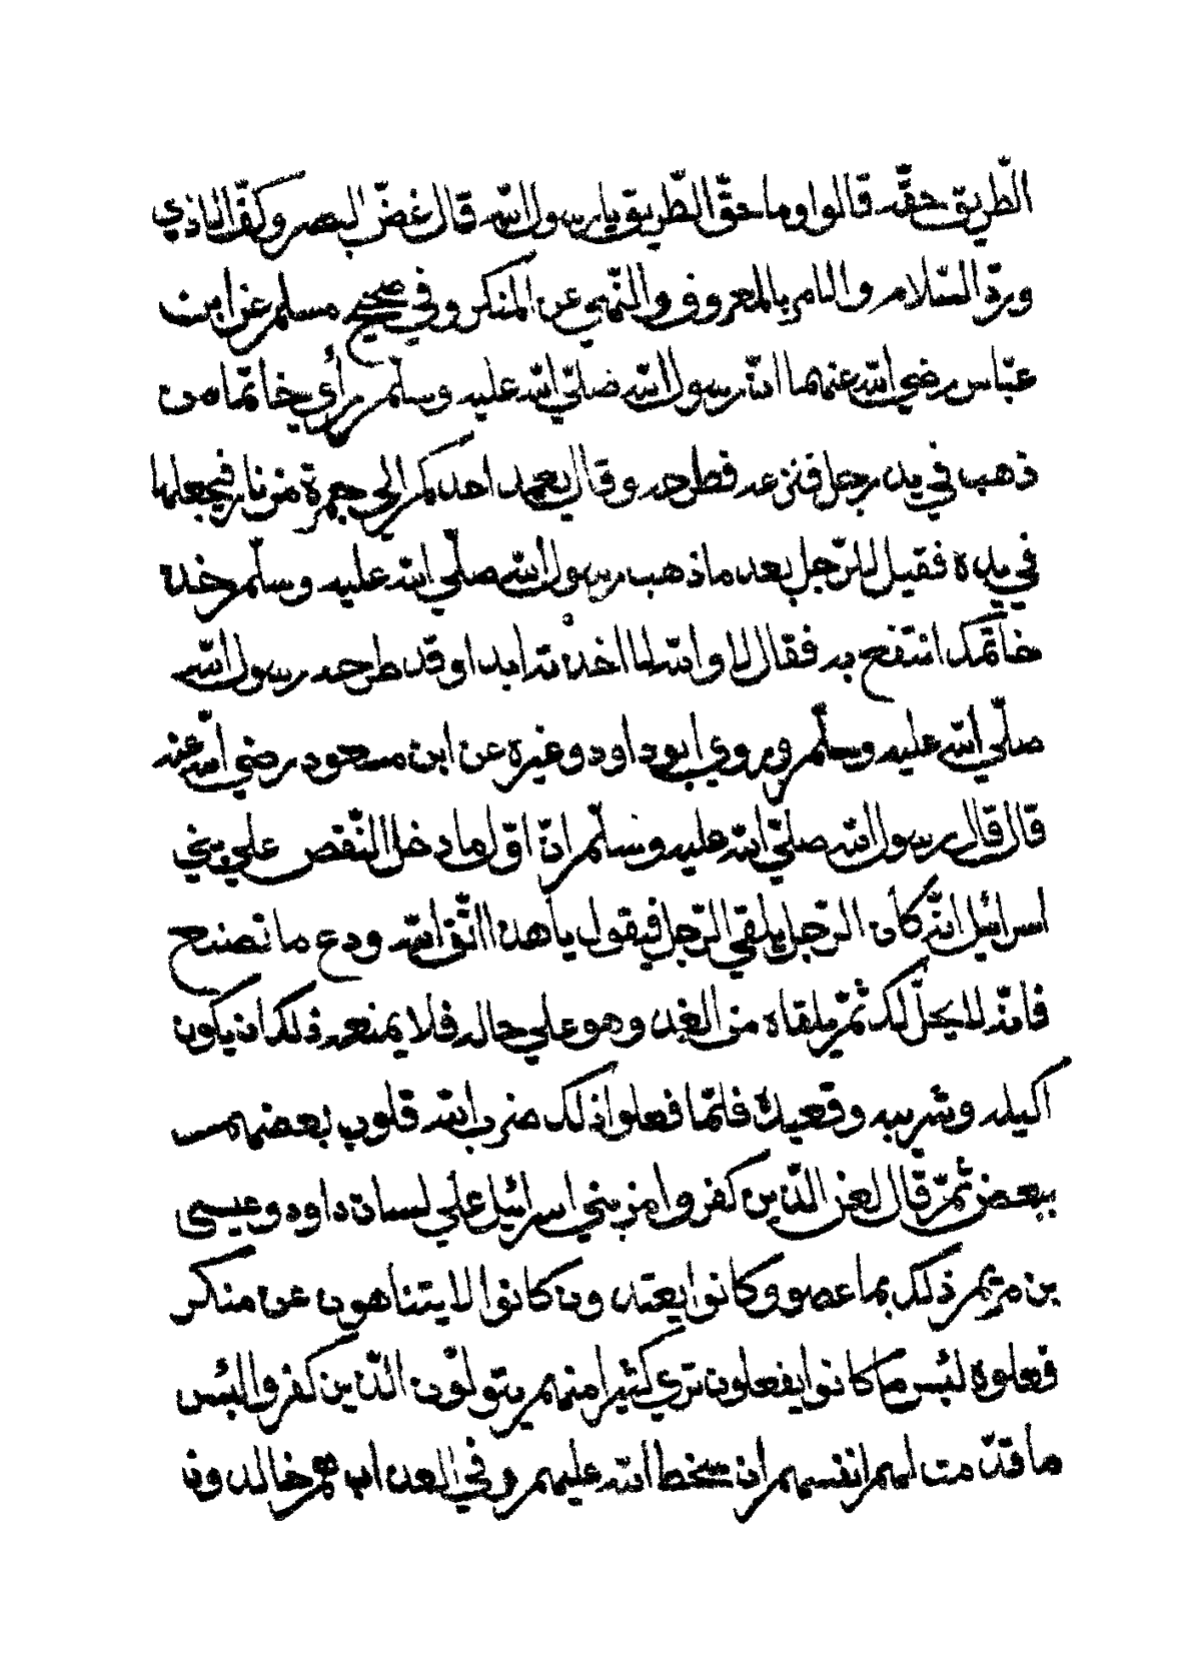 الطّريق حقّه قالوا وما حقّ الطّريق يا رسول الله قال غضّ البصر وكفّ الاذي
وردّ السّلام والامر بالمعروف والنّهي عن المنكر وفي صحيح مسلم عن ابن
عبّاس رضي الله عنهما انّ رسول الله صلّي الله عليه وسلّم رأي خاتما من
ذهب في يد رجل فنزعه فطرحه وقال يعمد احدكم الي جمرة من نار فيجعلها
في يده فقيل للرّجل بعد ما ذهب رسول الله صلّي الله عليه وسلّم خذ
خاتمك انتفع به فقال لا والله لا اخذته ابدا وقد طرحه رسول الله
صلّي الله عليه وسلّم وروي ابو داود وغيره عن ابن مسعود رضي الله عنه
قال قال رسول الله صلّي الله عليه وسلّم انّ اوّل ما دخل النّقص علي بني
اسرائيل انّه كان الرّجل يلقي الرّجل فيقول يا هذا اتّق الله ودع ما تصنع
فانّه لا يحلّ لك ثمّ يلقاه من الغد وهو علي حاله فلا يمنعه ذلك ان يكون
اكيله وشريبه وقعيده فلمّا فعلوا ذلك ضرب الله قلوب بعضهم
ببعض ثمّ قال لعن الّذين كفروا من بني اسرائيل علي لسان داود وعيسى
بن مريم ذلك بما عصوا وكانوا يعتدون كانوا لا يتناهون عن منكر
فعلوه لبئس ما كانوا يفعلون تري كثيرا منهم يتولّون الّذين كفروا لبئس
ما قدّمت لهم انفسهم ان سخط الله عليهم وفي العذاب هم خالدون